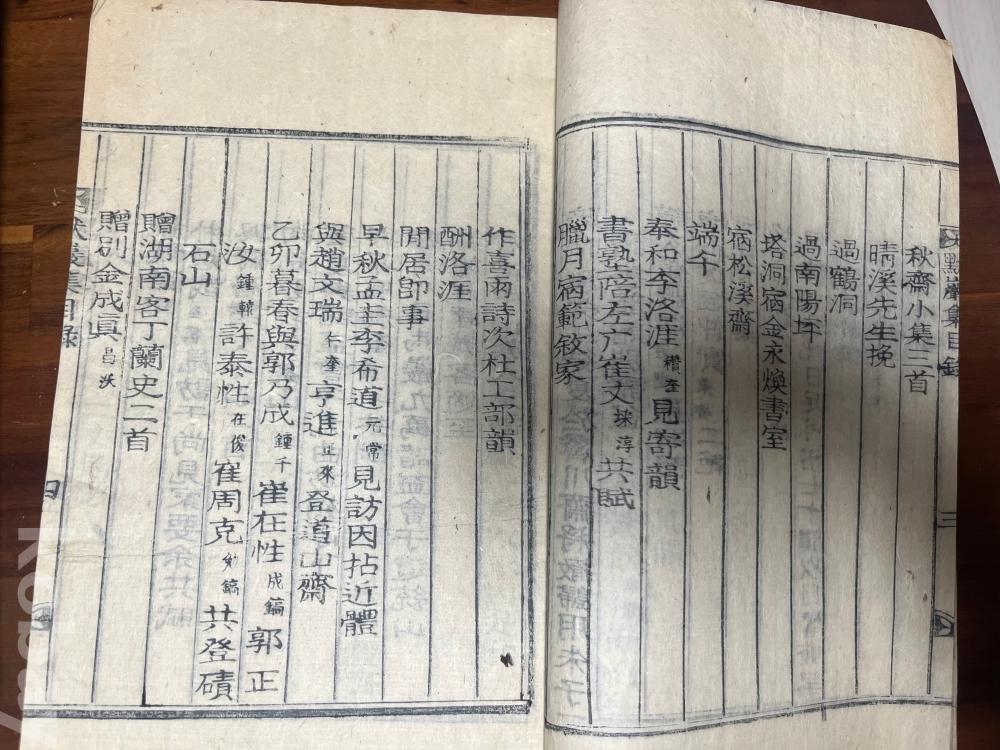 秋齋小集三首
晴溪先生挽
過鶴洞
過南陽坪
塔洞宿金永煥書室
宿松溪齋
端午
奉和李洛涯見寄韻
書塾陪左广崔丈珠淳共賦
臘月宿範敘家
作喜雨詩次杜工部韻
酬洛涯
閒居即事
早秋孟圭李希道元常見訪因拈近體
與趙文瑞仁奎亨進正來登道山齋
乙卯暮春與郭乃成鍾千崔在性成鎬郭正
汝鍾榦許泰性在俊崔周克鎬共登磧
石山
贈湖南客丁蘭史二首
贈別金成眞昌沃
集目錄
三
四
kobay